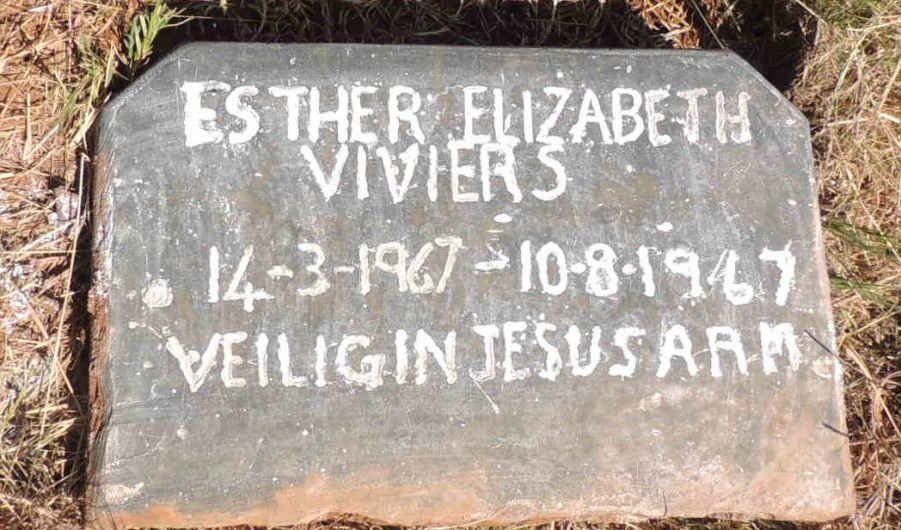 ESTHER ELIZABETH
VIVIERS
14-3-1967-10-8-1967
VEILIG IN JESUS ARM